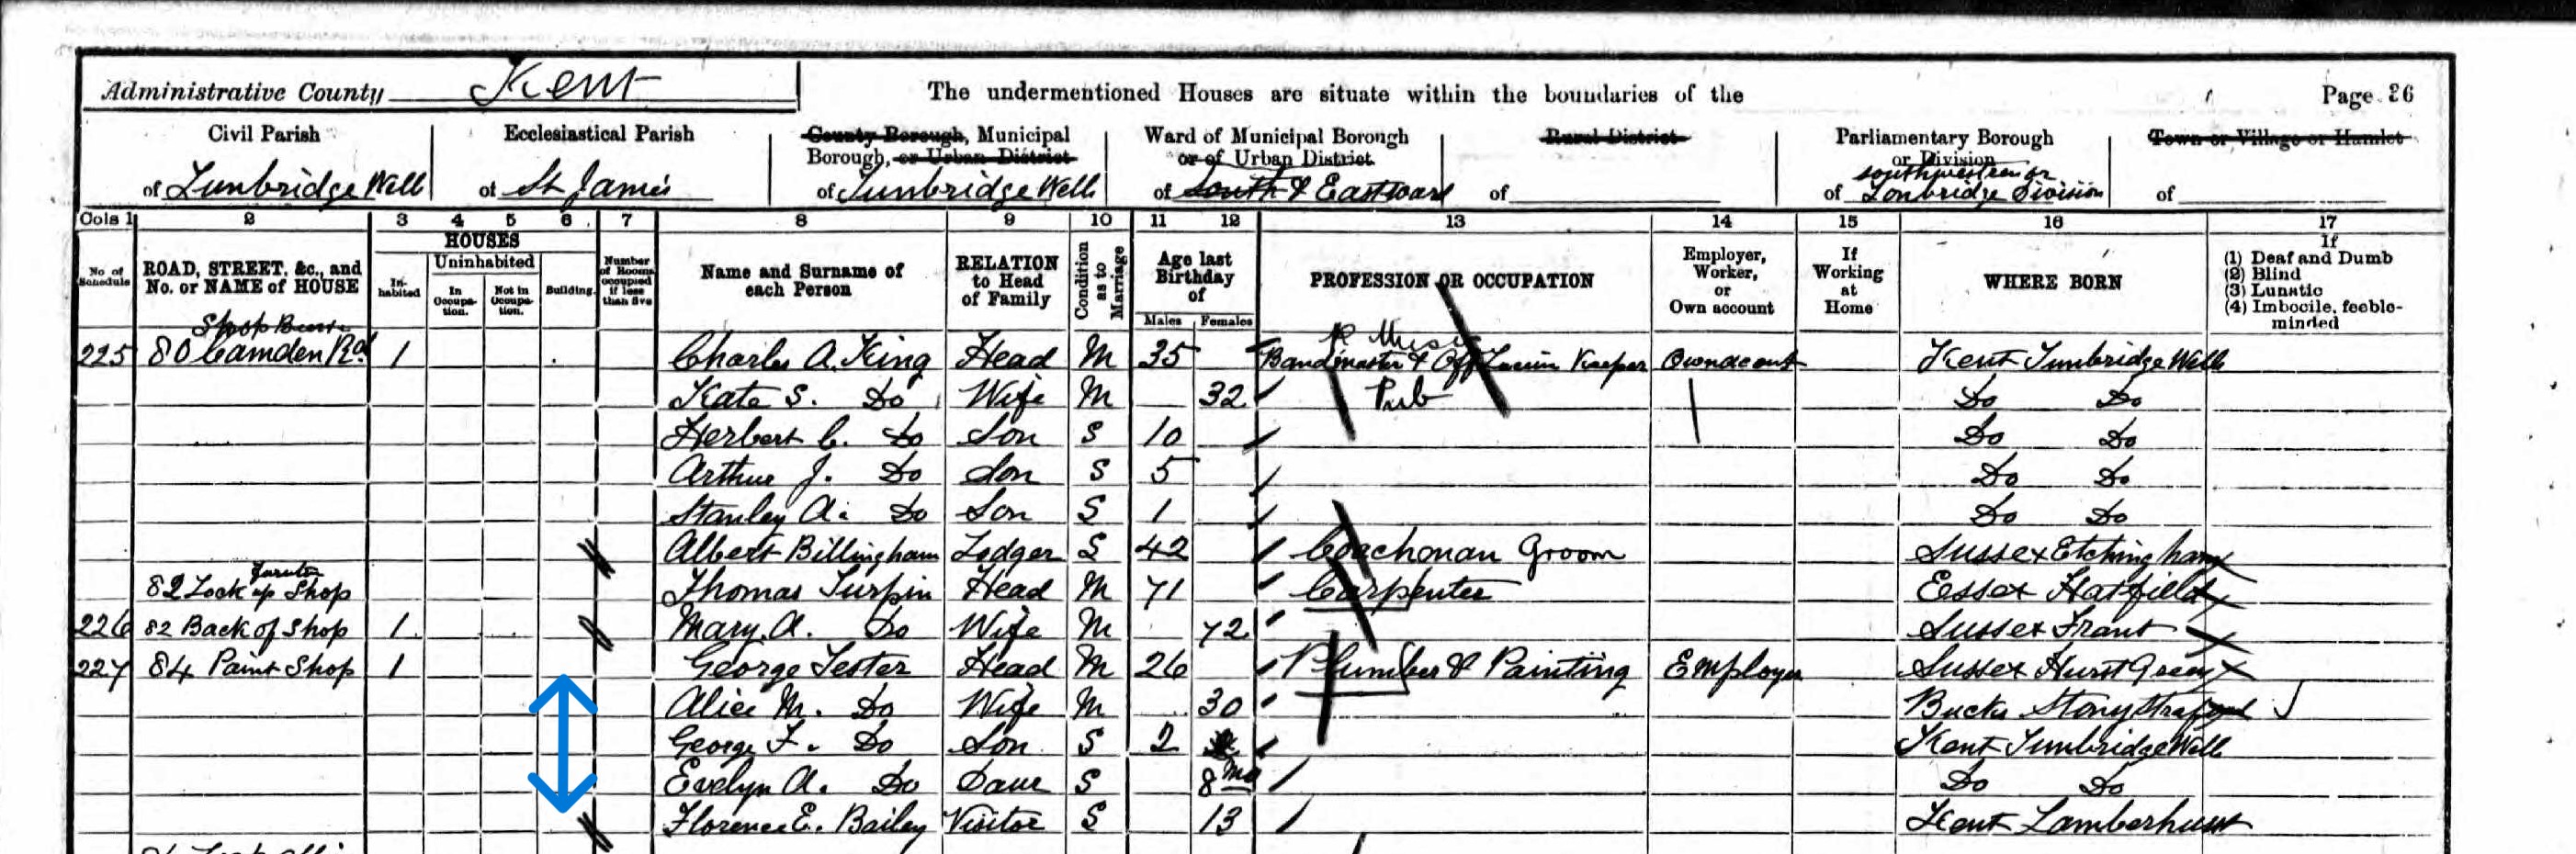 Administrative County Kent The undermentioned Houses are situate within the boundaries of the Page 26
Civil Parish Ecclesiastical Parish County Borough, Municipal Borough, or Urban District Ward of Municipal Borough or of Urban District Rural District Parliamentary Borough or Division Town or Village or Hamlet
of Tunbridge Wells of St James of Tunbridge Wells of South & East ward of of Tonbridge Division of
Cols 1 2 3 4 5 6 7 8 9 10 11 12 13 14 15 16 17
No of Schedule ROAD, STREET, &c., and No. or NAME of HOUSE HOUSES In-habited Uninhabited In Occupa-tion. Not in Occupa-tion. Building. Number of Rooms occupied if less than five Name and Surname of each Person RELATION to Head of Family Condition as to Marriage Age last Birthday of Males Females PROFESSION OR OCCUPATION Employer, Worker, or Own account If Working at Home WHERE BORN If (1) Deaf and Dumb (2) Blind (3) Lunatic (4) Imbecile, feeble-minded
225 80 Camden Rd 1 Charles A. King Head M 35 Bandmaster & Off Keeper Own acount Kent Tunbridge Wells
Kate S. Do Wife M 32 Pub Do Do
Herbert C. Do Son S 10 Do Do
Arthur J. Do Son S 5 Do Do
Stanley A. Do Son S 1 Do Do
Albert Billingham Lodger S 42 Coachman Groom Sussex Etchingham
82 Lock up Shop Thomas Turpin Head M 71 Carpenter Essex Hatfield
226 82 Back of Shop 1 Mary. A. Do Wife M 72 Sussex Frant
227 84 Paint Shop 1 George Tester Head M 26 Plumber & Painting Employer Sussex Hurst Green
Alice M. Do Wife M 30 Bucks Stony Stratford
George F. Do Son S 2 Kent Tunbridge Wells
Evelyn A. Do Daur S 8 mo Do Do
Florence E. Bailey Visitor S 13 Kent Lamberhurst